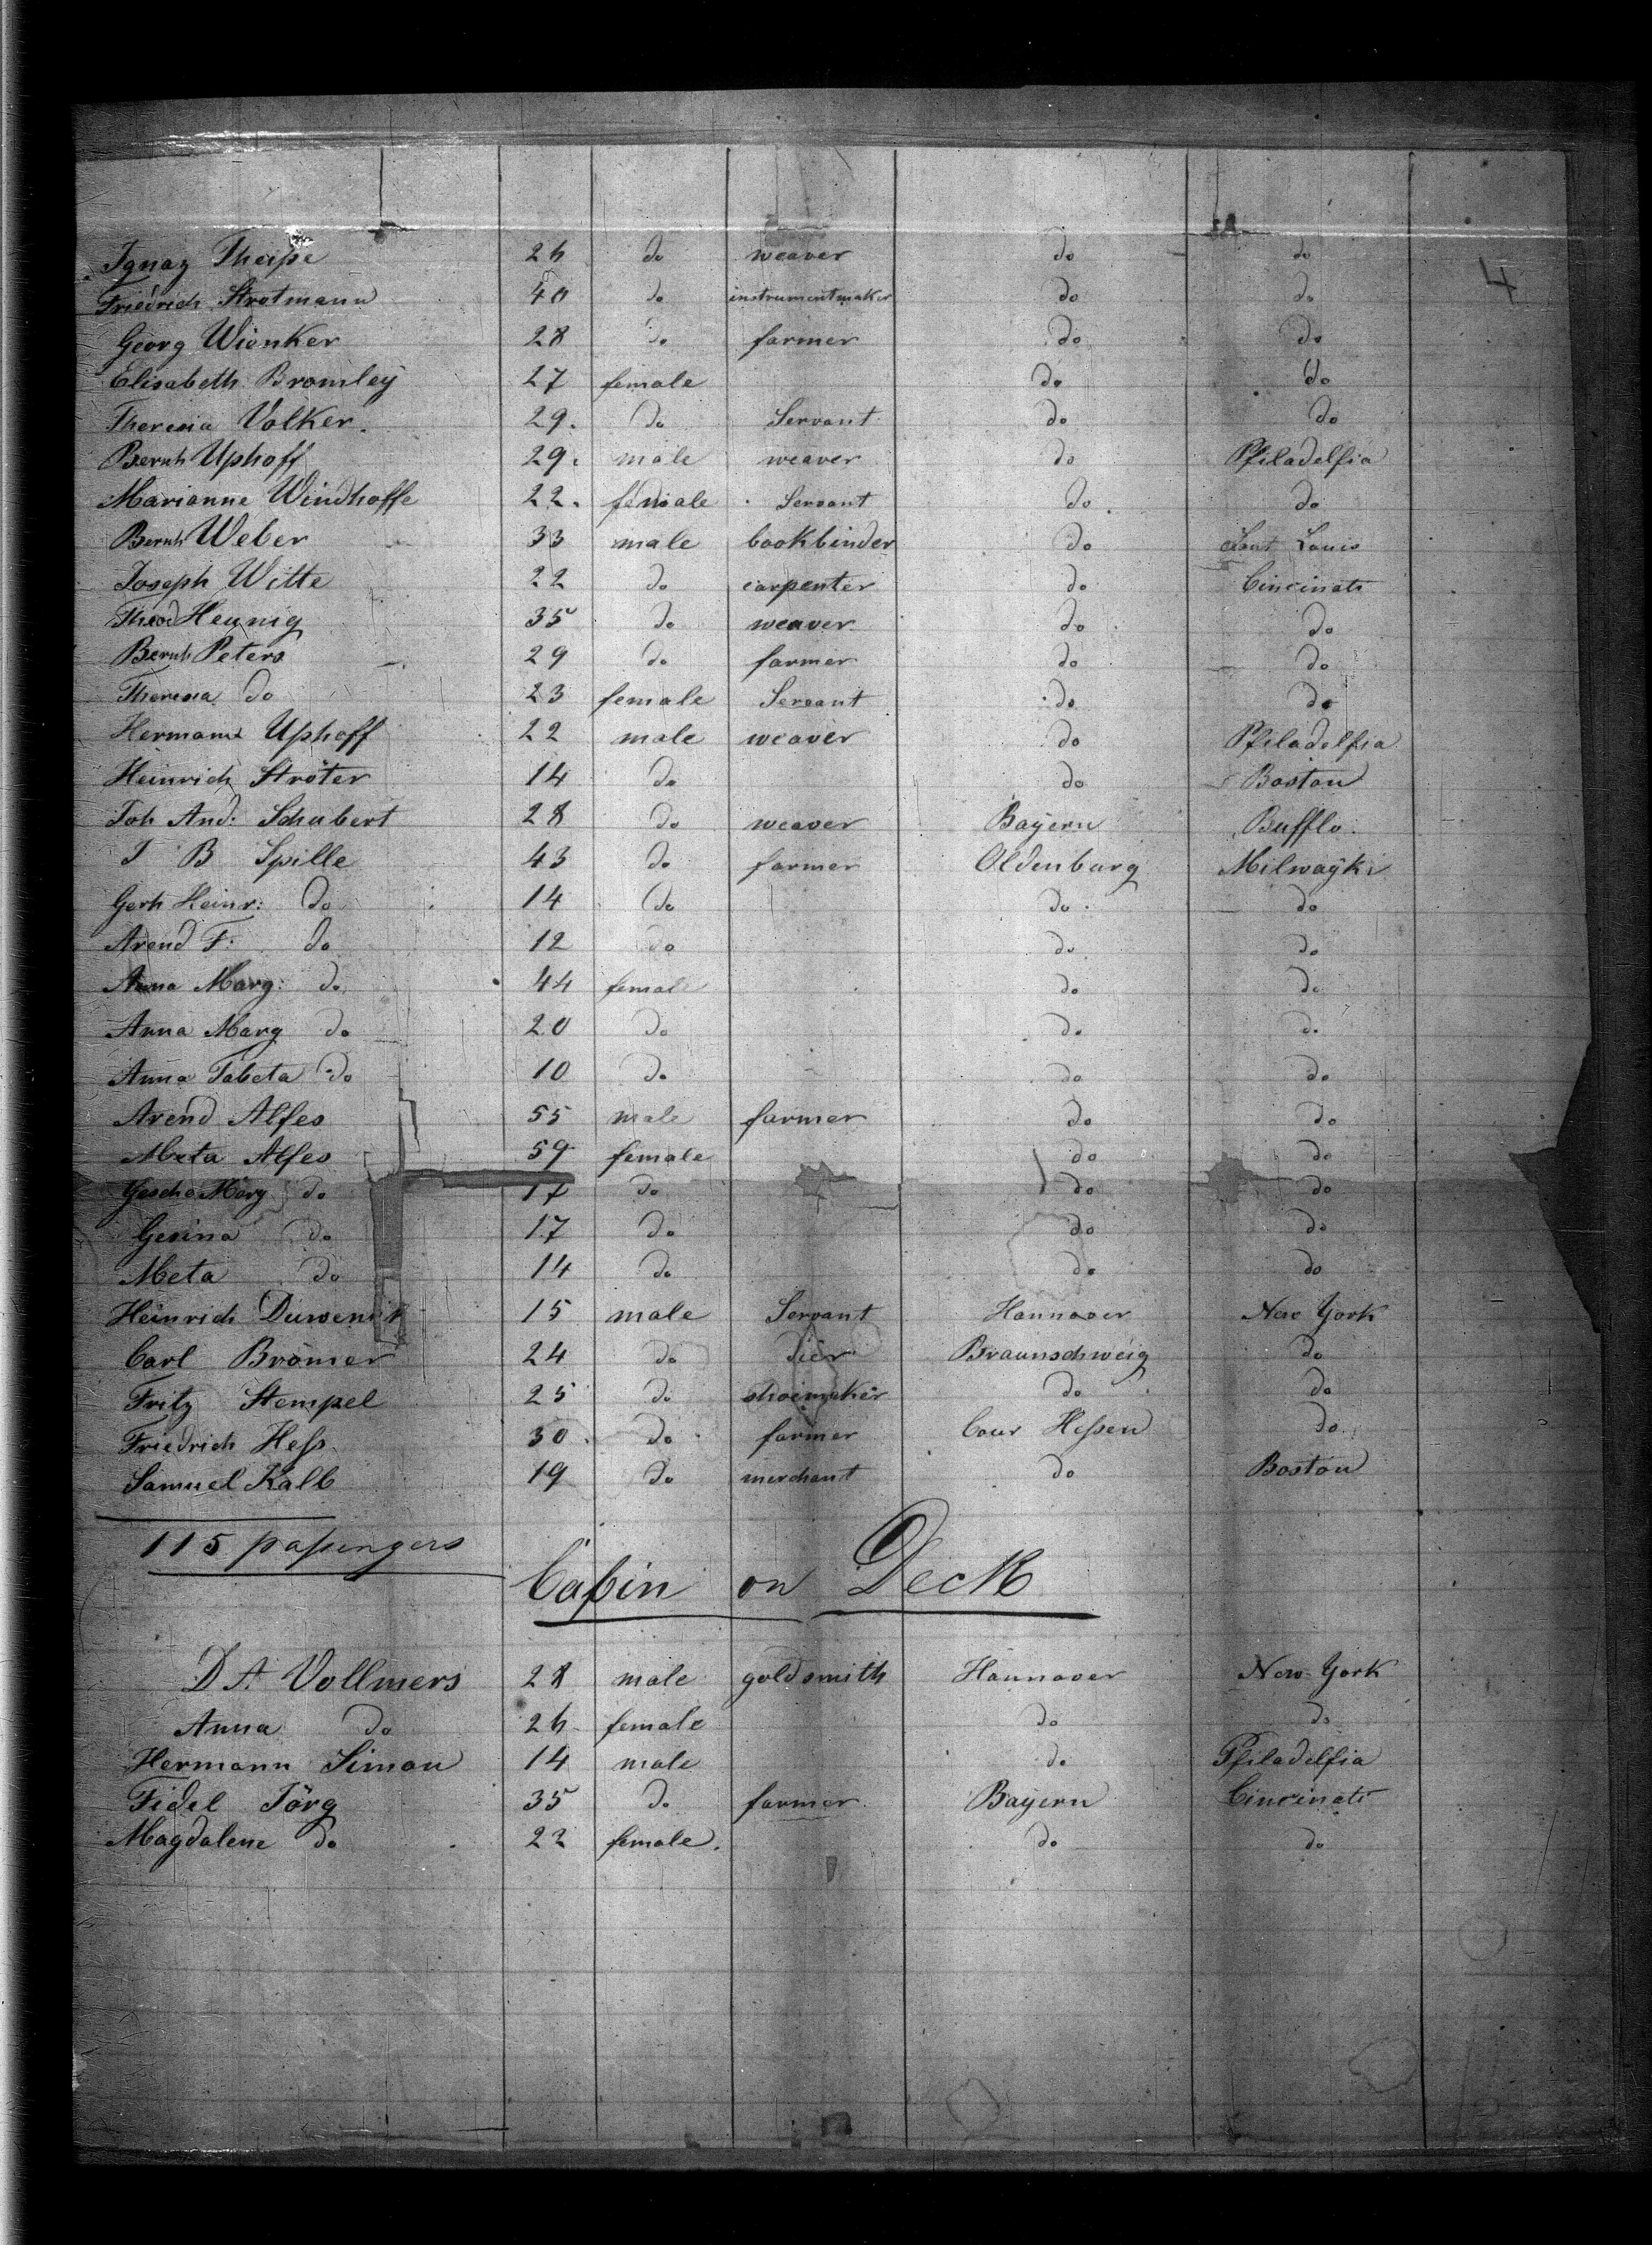 4
Ignaz Theipe 26 do weaver do do
Friedrich Strotmann 40 do instrumentmaker do do
Georg Wienker 28 do farmer do do
Elisabeth Bromley 27 female do do
Theresia Volker. 29. do Servant do do
Bernh Uphoff 29. male weaver do Pfiladelfia
Marianne Windhoffe 22. female Servant do. do
Bernh Weber 33 male bookbinder do Sant Louis
Joseph Witte 22 do carpenter do Cincinati
Theod Hennig 35 do weaver do do
Bernh Peters 29 do farmer do do
Theresia do 23 female Servant do do
Hermann Uphoff 22 male weaver do Pfiladelfia
Heinrich Ströter 14 do do Boston
Joh And: Schubert 28 do weaver Bayern Bufflo.
J B Spille 43 do farmer Oldenburg Milwayki
Gerh Heinr: do 14 do do do
Arend F: do 12 do do do
Anna Marg: do 44 female do do
Anna Marg do 20 do do do
Anna Tabeta do 10 do do do
Arend Alfes 55 male farmer do do
Meta Alfes 59 female do do
Gesche Marg do 17 do do do
Gesina do 17 do do do
Meta do 14 do do do
Heinrich Duwen 15 male Servant Hannover New York
Carl Brömer 24 do dier Braunschweig do
Fritz Stempel 25 do shoimaker do do
Friedrich Heß 30 do farmer Cour Heßen do
Samuel Kalb 19 do merchant do Boston
115 paßengers
Cabin on Deck
D A Vollmers 28 male goldsmith Hannover New-York
Anna do 26 female do do
Hermann Simon 14 male do Pfiladelfia
Fidel Jörg 35 do farmer Bayern Cincinati
Magdalene do 22 female. do do